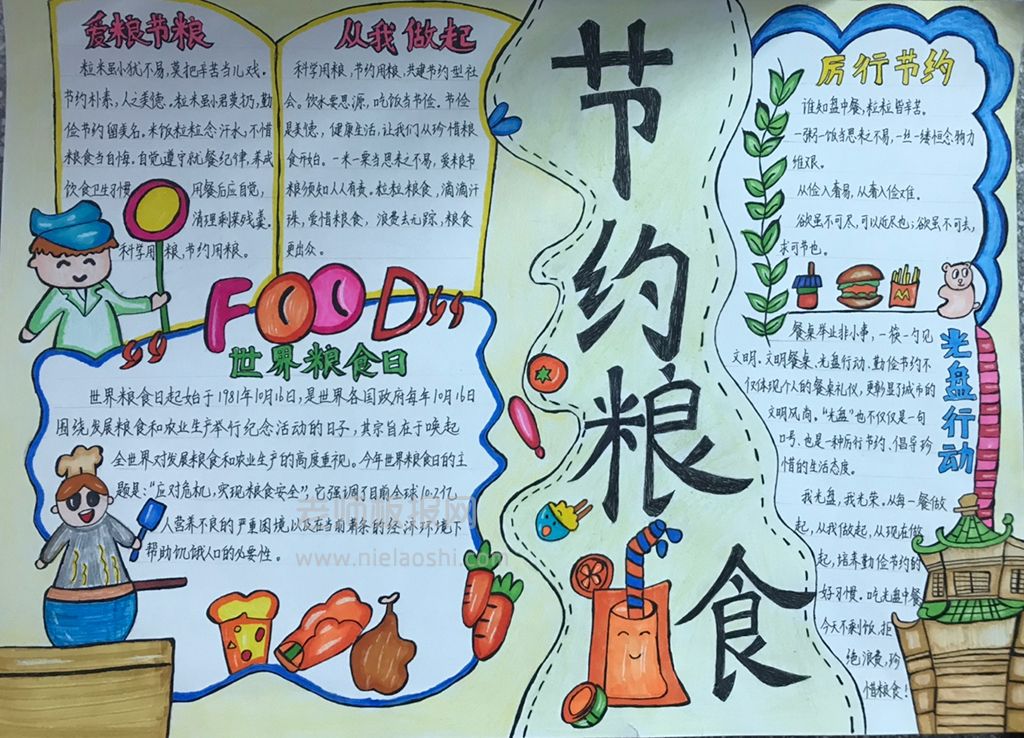 爱粮节粮
粒米虽小犹不易,莫把辛苦当儿戏。
节约朴素,人之美德。粒米虽小君莫扔,勤
俭节约留美名。米饭粒粒念汗水,不惜
粮食当自悔。自觉遵守就餐纪律,养成
饮食卫生习惯 用餐后应自觉,
清理剩菜残羹。
科学用粮,节约用粮。
从我做起
科学用粮,节约用粮,共建节约型社
会。饮水要思源,吃饭当节俭。节俭
是美德,健康生活,让我们从珍惜粮
食开始。一米一粟当思来之不易,爱粮节
粮须知人人有责。粒粒粮食,滴滴汗
珠,爱惜粮食,浪费去无踪,粮食
更出众。
FOOD
世界粮食日
世界粮食日起始于1981年10月16日,是世界各国政府每年10月16日
围绕发展粮食和农业生产举行纪念活动的日子,其宗旨在于唤起
全世界对发展粮食和农业生产的高度重视。今年世界粮食日的主
题是:“应对危机,实现粮食安全”,它强调了目前全球10.2亿
人营养不良的严重困境以及在当前的经济环境下
帮助饥饿人口的必要性。
老师板报网
www.nielaoshi.com
节约粮食
厉行节约
谁知盘中餐,粒粒皆辛苦。
一粥一饭当思来之不易,一丝一缕恒念物力
维艰。
从俭入奢易,从奢入俭难。
欲虽不可尽,可以近尽也;欲虽不可去,
求可节也。
光盘行动
餐桌举业非小事,一筷一勺见
文明。文明餐桌、光盘行动、勤俭节约不
仅体现个人的餐桌礼仪,更彰显了城市的
文明风尚。“光盘”也不仅仅是一句
口号、也是一种厉行节约、倡导珍
惜的生活态度。
我光盘,我光荣。从每一餐做
起,从我做起,从现在做
起,培养勤俭节约的
好习惯。吃光盘中餐
今天不剩饭,拒
绝浪费,珍
惜粮食!